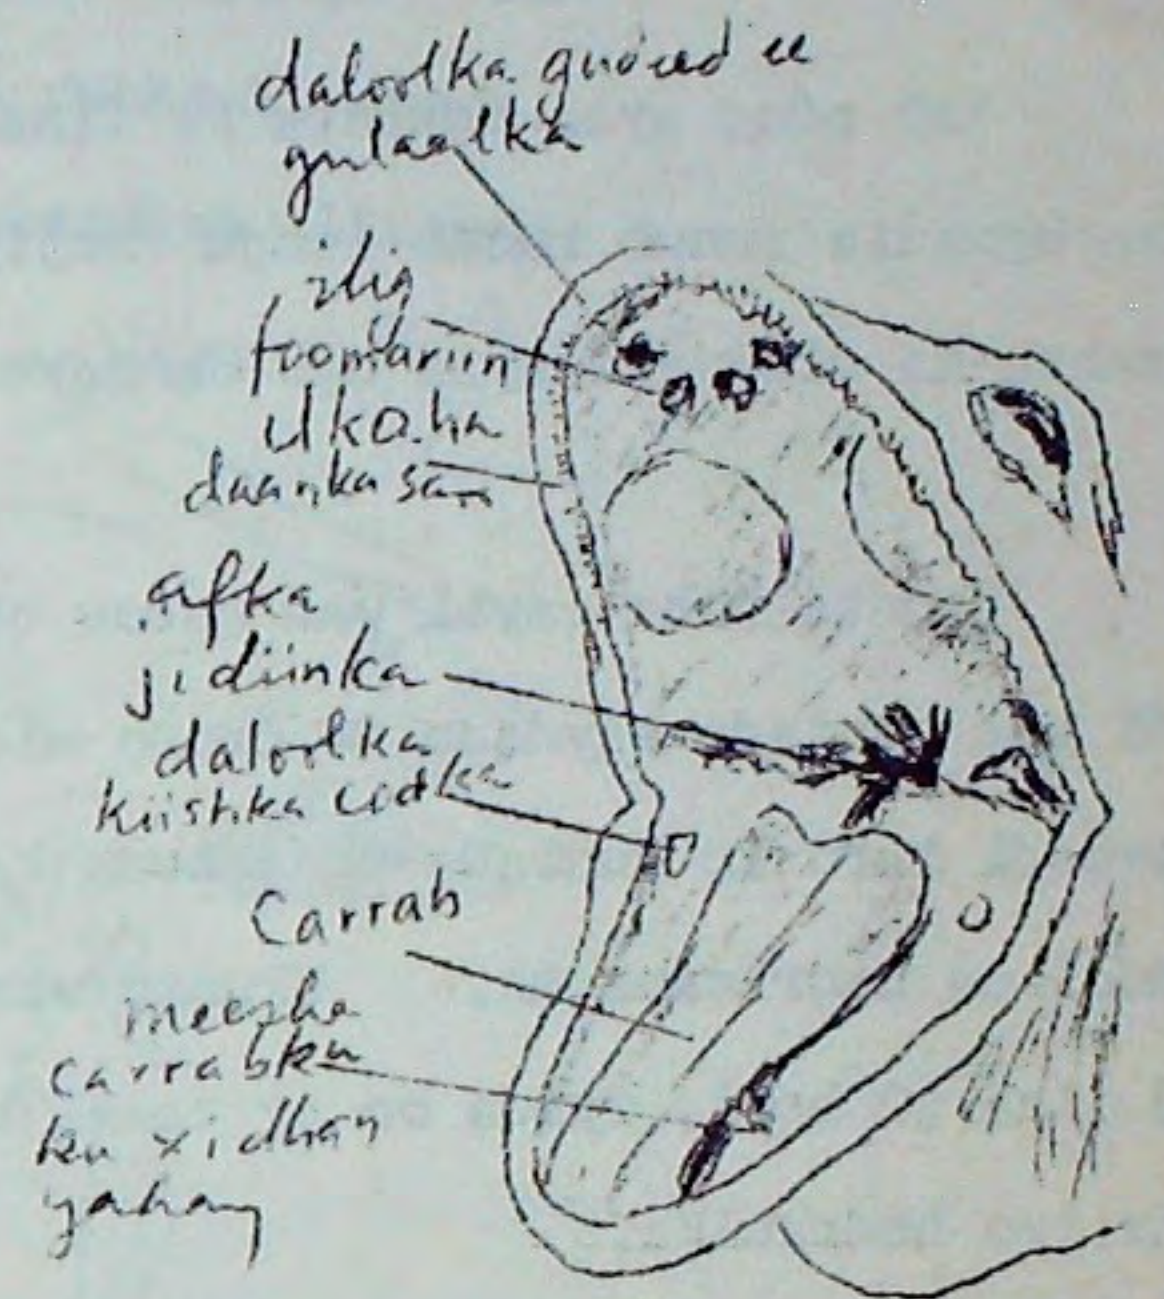 daloolka gudeed ee
gulaalka
ilig
foomariin
ilkaha
daanka sare
afka
jidiinka
daloolka
kiishka codka
Carrab
meesha
carrabku
ku xidhan
yahay